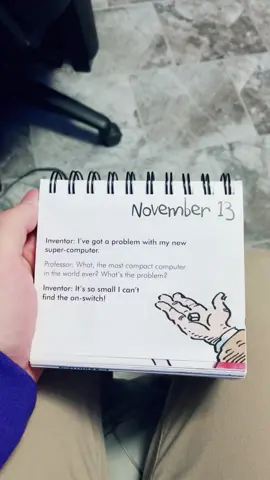 November 13
Inventor: I've got a problem with my new
super-computer.
Professor: What, the most compact computer
in the world ever? What's the problem?
Inventor: It's so small I can't
find the on-switch!